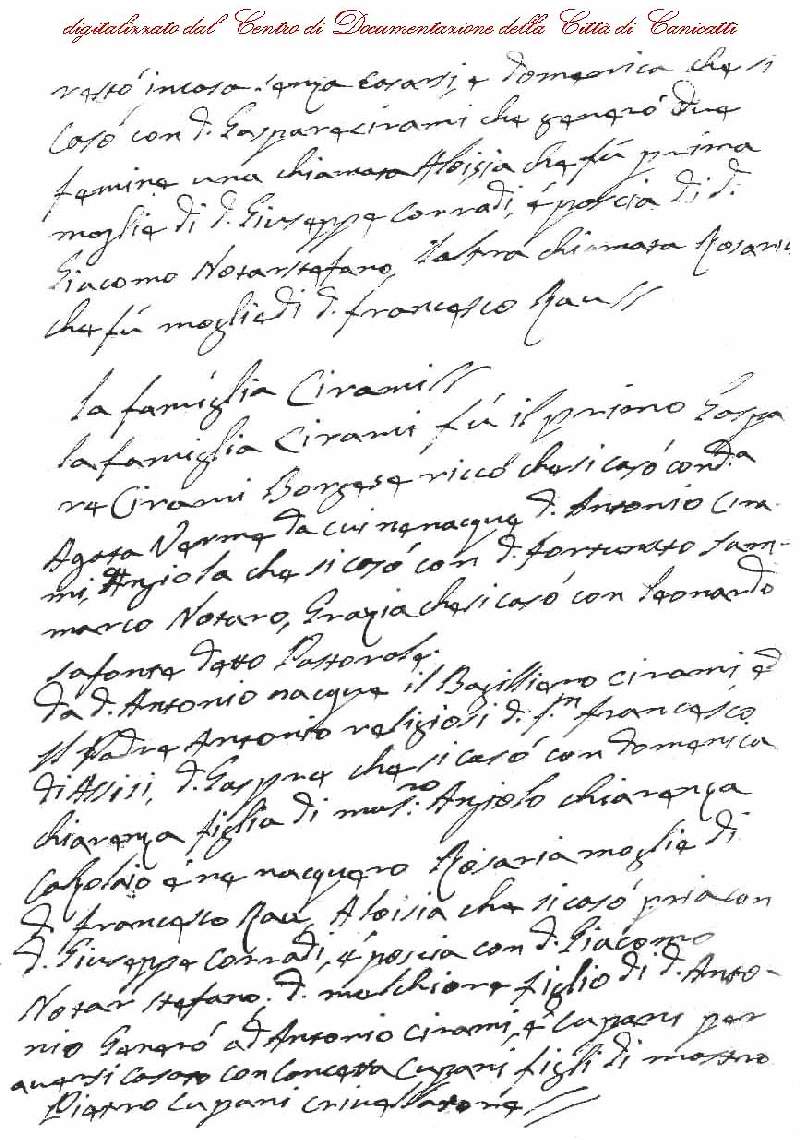 digitalizzato dal Centro di Documentazione della Città di Canicattì
restò in casa senza casarsi, e domenica che si
casò con d. Gaspare cirami che generò due
femine una chiamata Aloisia che fù prima
moglie di d. Giuseppe Corradi, e poscia di d.
Giacomo Notarstefano, l'altra chiamata Rosaria
che fù moglie di d. francesco Rau//
la famiglia Cirami//
la famiglia Cirami fù il primo Gaspa
re Cirami Borgese riccò che si casò con d.a
Agata Verme da cui ne nacque d. Antonio Cira-
mi, Anjola che si casò con d. fortunato Sam-
marco Notaro, Grazia che si casò con Leonardo
lafonte detto Pastorale.
da d. Antonio nacque il Bacilliero cirami éd
il Padre Antonio religiosi di S.n francesco
di Assisi, d. Gaspare che si casò con domenica
chiarenza figlia di mas.ro Anjolo chiarenza
Calzolaio é ne nacquero Rosaria moglie di
d. francesco Rau, Aloisia che si casò pria con
d. Giuseppe Corradi, é poscia con d. Giacomo
Notar stefano. d. melchiore figlio di d. Anto-
nio Generò ad Antonio cirami, é Cupani per
aversi casato con Concetta Cupani figli di mastro
Pietro Cupani crivellatore//